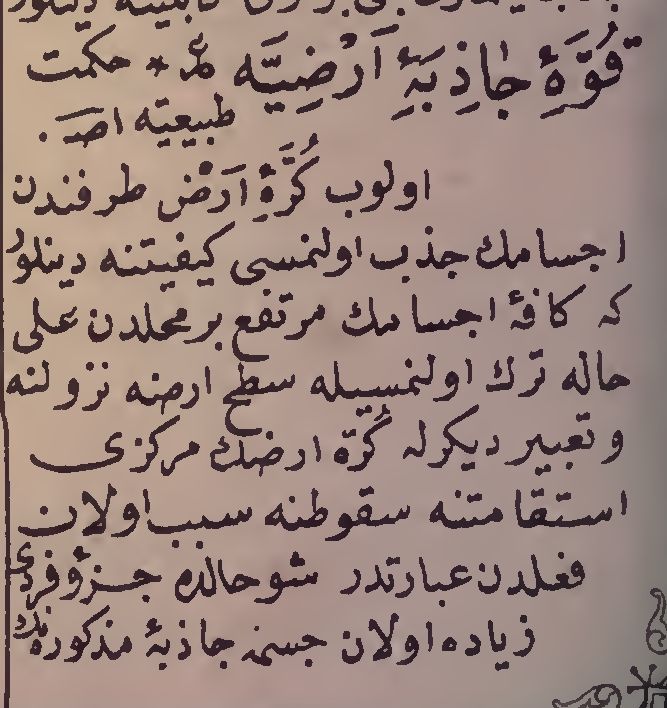 قُوَّهٔ جَاذِبَهٔ اَرْضِيَّه * حكمت
طبيعيه اصـ .
اولوب كُرَّهٔ اَرْض طرفندن
اجسامك جذب اولنمسى كيفيتنه دينلور
كه كافهٔ اجسامك مرتفع بر محلدن على
حاله ترك اولنمسيله سطح ارضه نزولنه
و تعبير ديكرله كُرّه ارضك مركزى
استقامتنه سقوطنه سبب اولان
فعلدن عبارتدر شو حالده جزؤ فردى
زياده اولان جسمه جاذبهٔ مذكوره نك